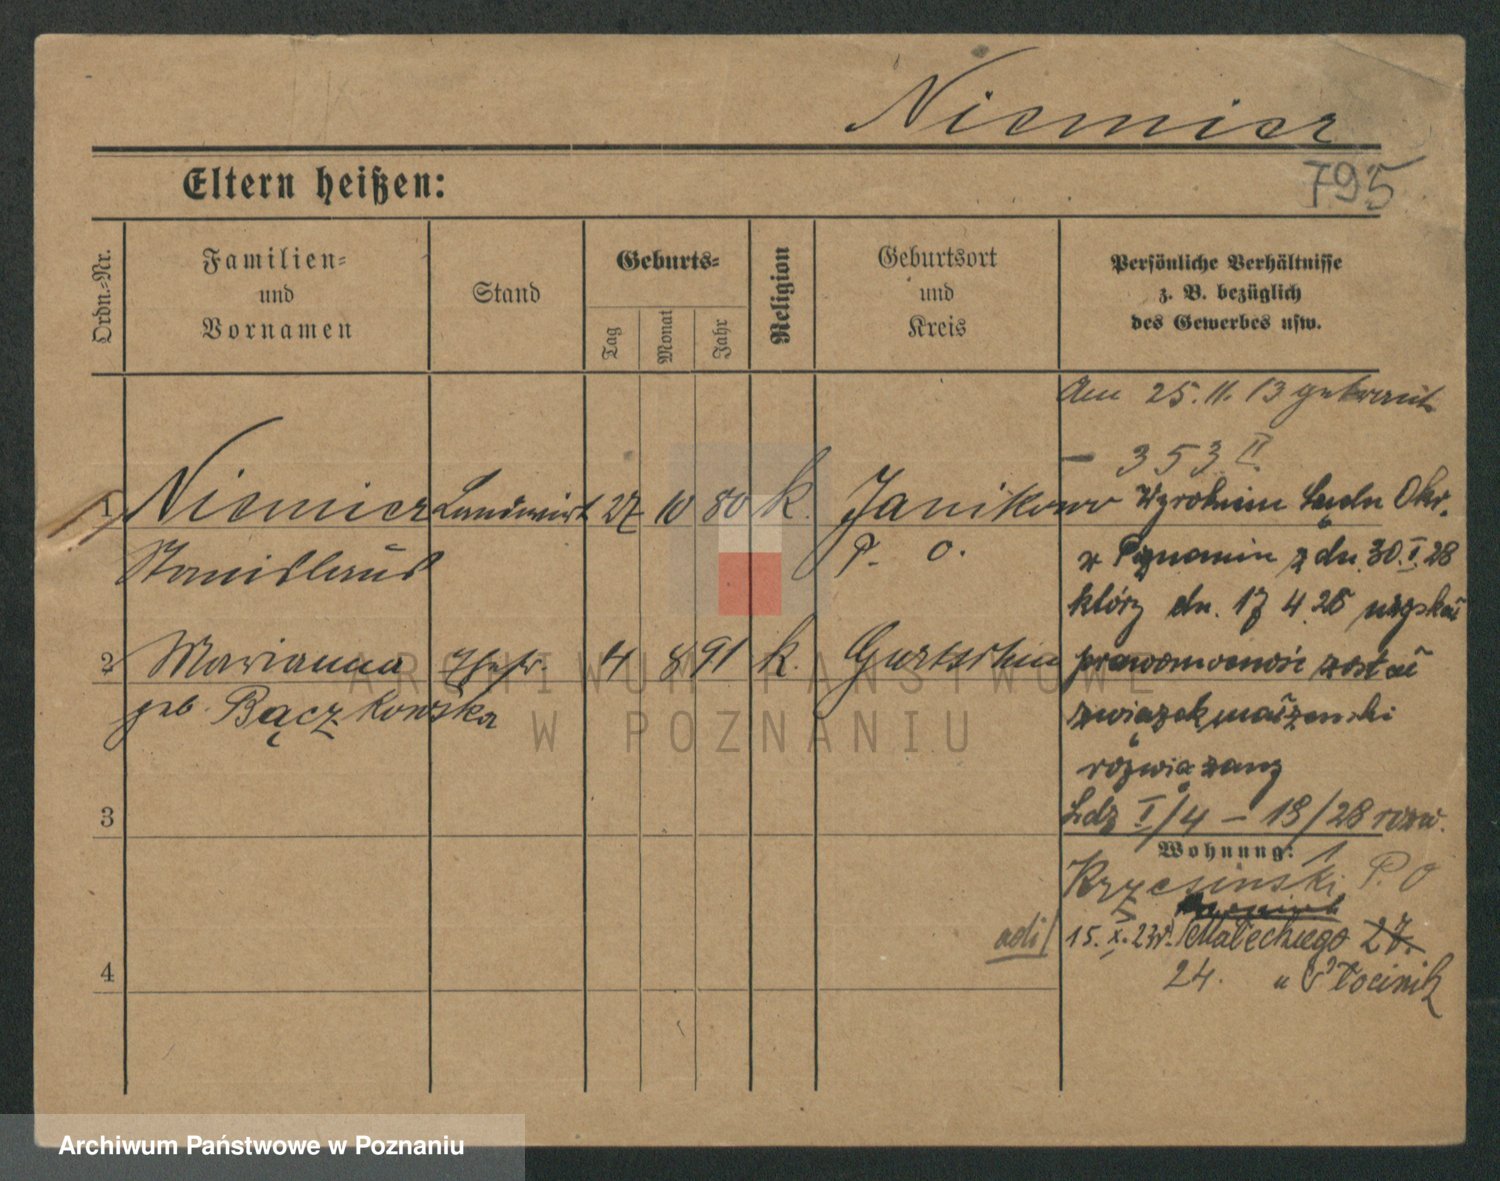 Niemier
795
Eltern heißen:
Ordn.-Nr.
Familien-
und
Vornamen
Stand
Geburts-
Tag
Monat
Jahr
Religion
Geburtsort
und
Kreis
Persönliche Verhältnisse
z. B. bezüglich
des Gewerbes usw.
Am 25.11.13 getraut
— 353 II
1 Niemier Landwirt 27 10 80 k. Janikowo
Stanislaus P. O.
Wyrokiem Sądu Okr.
w Poznaniu z dn. 30.I.28
który dn. 17 4 28 uzyskał
2 Marianna Ehefr. 4 8 91 k. Gurtschin
geb. Bączkowska
prawomocność został
związek małżeński
rozwiązany
3
Ldz I/4 – 18/28 rozw.
Wohnung:
Krzesinski P. O
adi/ 15. X. 23 r. Małeckiego 27.
24. "
4
ARCHIWUM PAŃSTWOWE
W POZNANIU
Archiwum Państwowe w Poznaniu